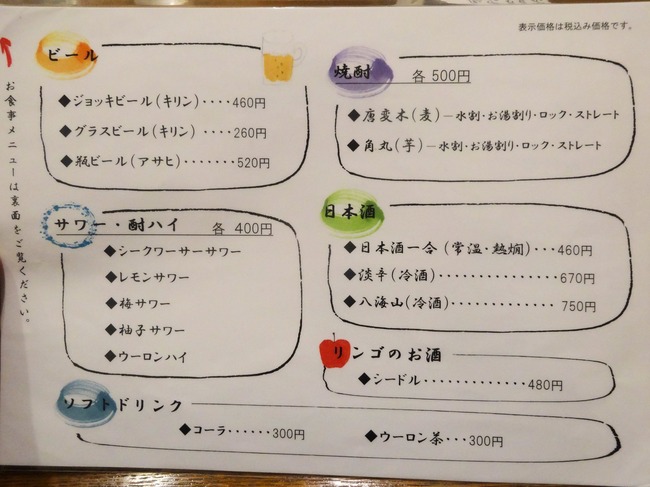 表示価格は税込み価格です。
お食事メニューは裏面をご覧ください。
ビール
◆ジョッキビール(キリン)････460円
◆グラスビール(キリン)････260円
◆瓶ビール(アサヒ)･･･････520円
サワー・酎ハイ 各 400円
◆シークワーサーサワー
◆レモンサワー
◆梅サワー
◆柚子サワー
◆ウーロンハイ
焼酎 各 500円
◆唐変木(麦)―水割・お湯割り・ロック・ストレート
◆角丸(芋)―水割・お湯割り・ロック・ストレート
日本酒
◆日本酒一合(常温・熱燗)･･･460円
◆淡辛(冷酒)･････････････670円
◆八海山(冷酒)････････････ 750円
リンゴのお酒
◆シードル･････････････480円
ソフトドリンク
◆コーラ･･････300円
◆ウーロン茶･･･300円